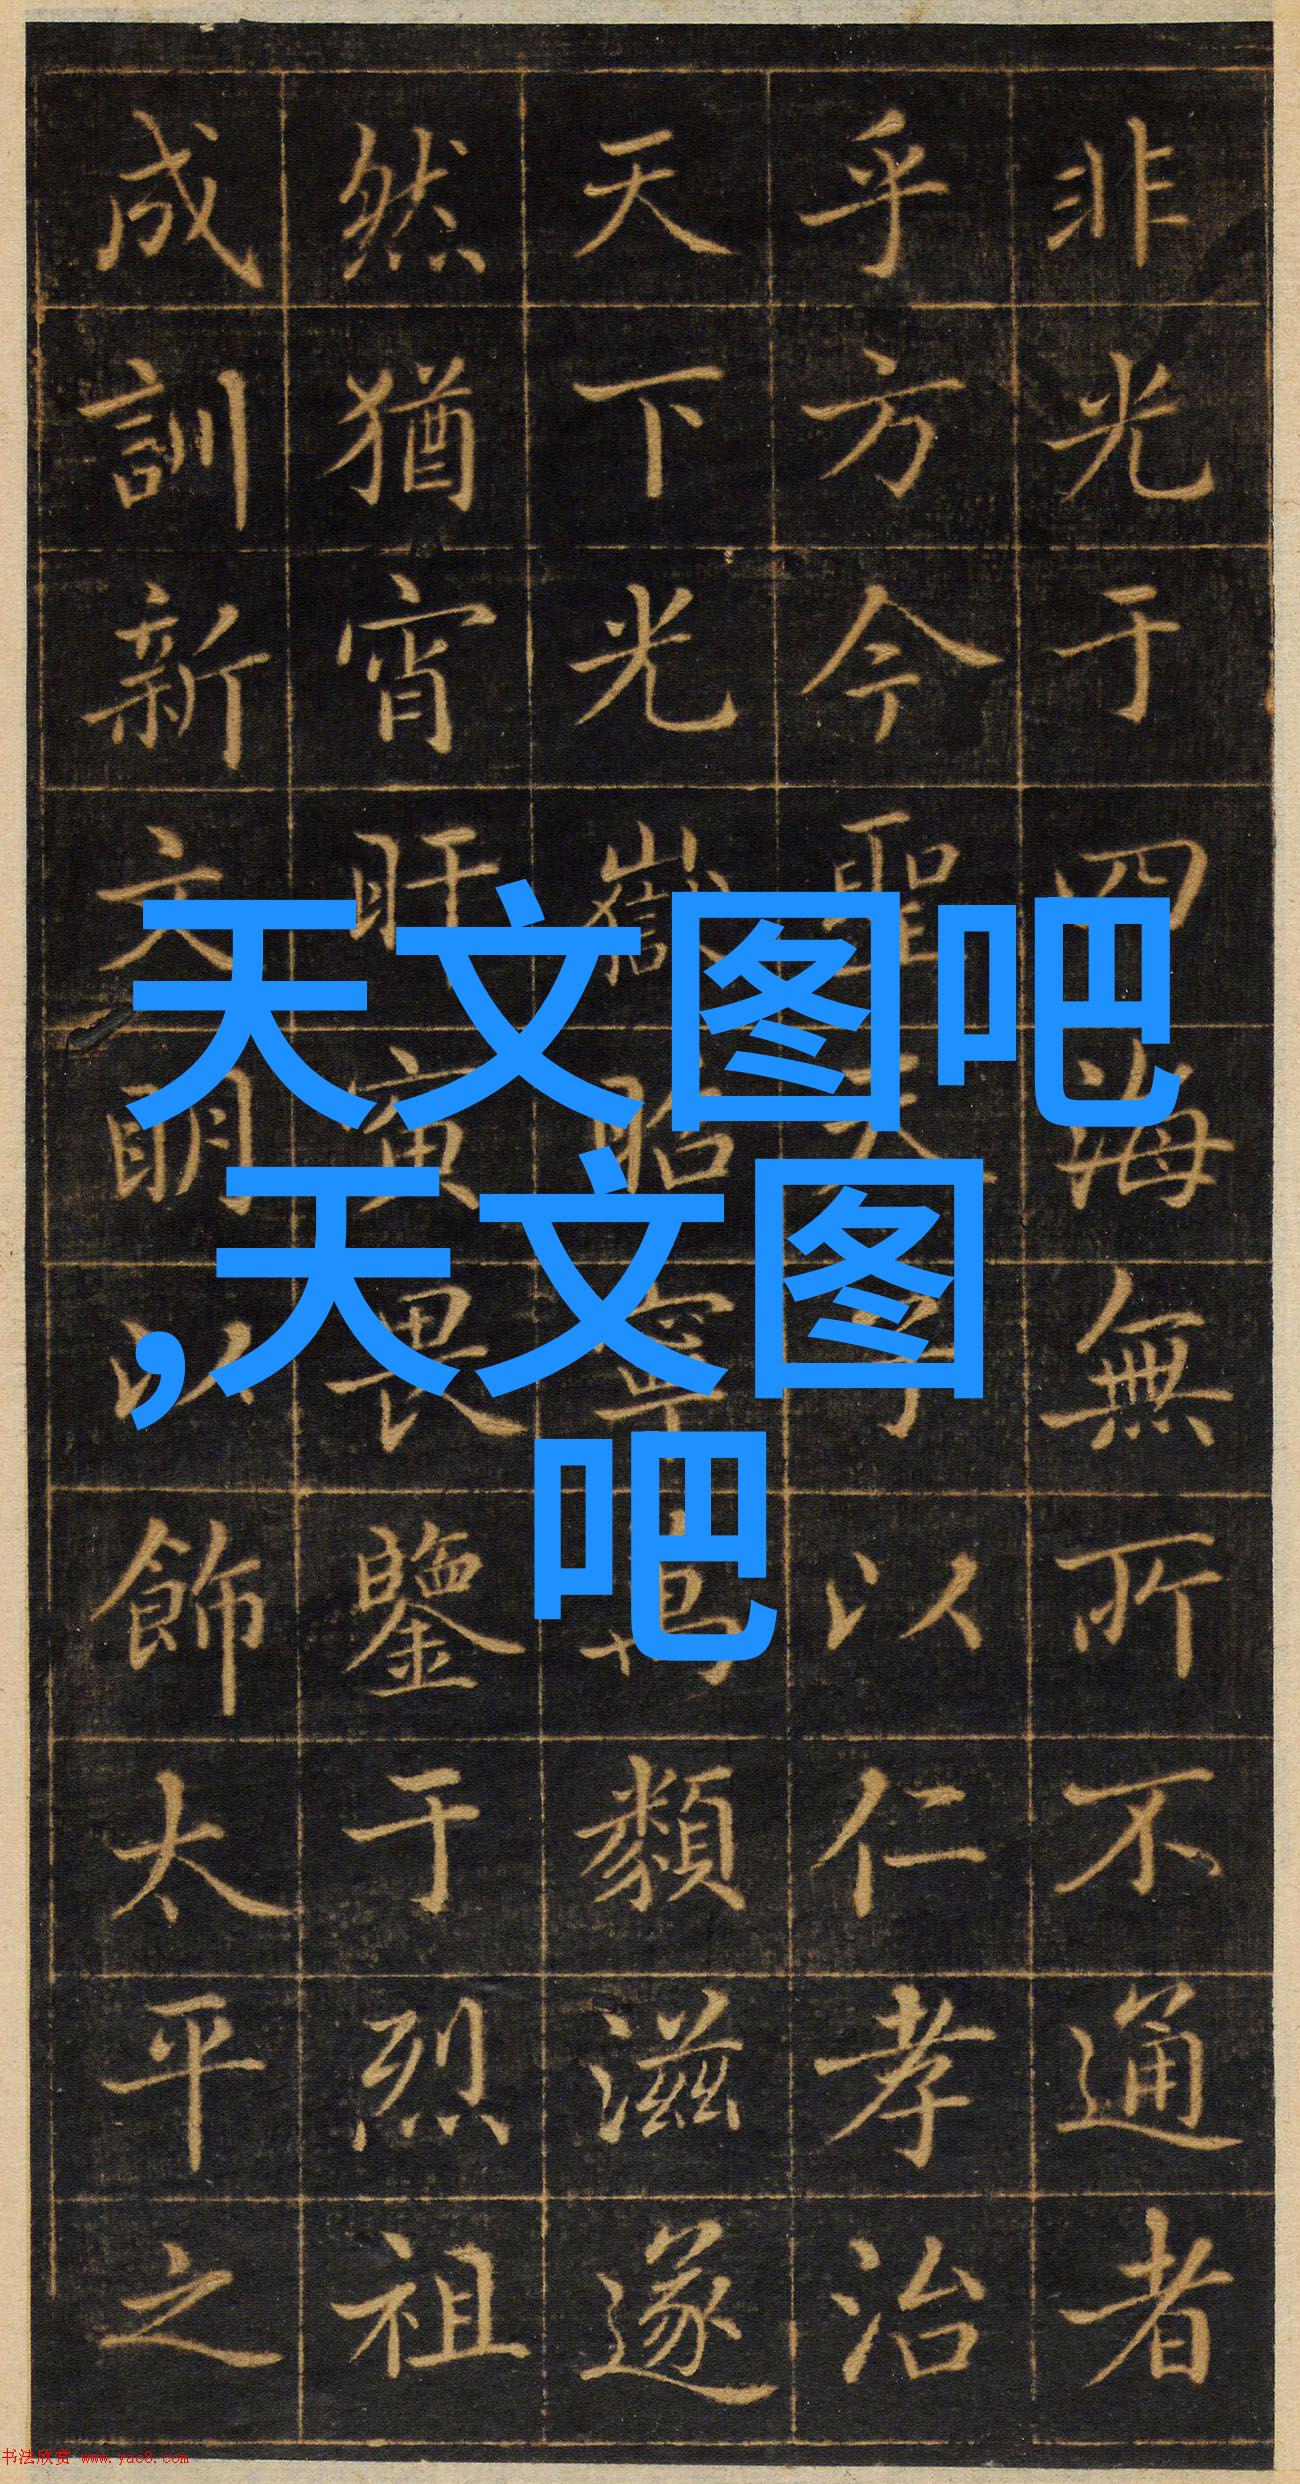 非光于四海無所不通者
乎方今聖天子以仁孝治
天下光嶽昭寧万類滋遂
然猶宵旰寅畏鑒于烈祖
成訓新文明以飾太平之
天文图吧
,天文图
吧
书法欣赏 www.yac8.com